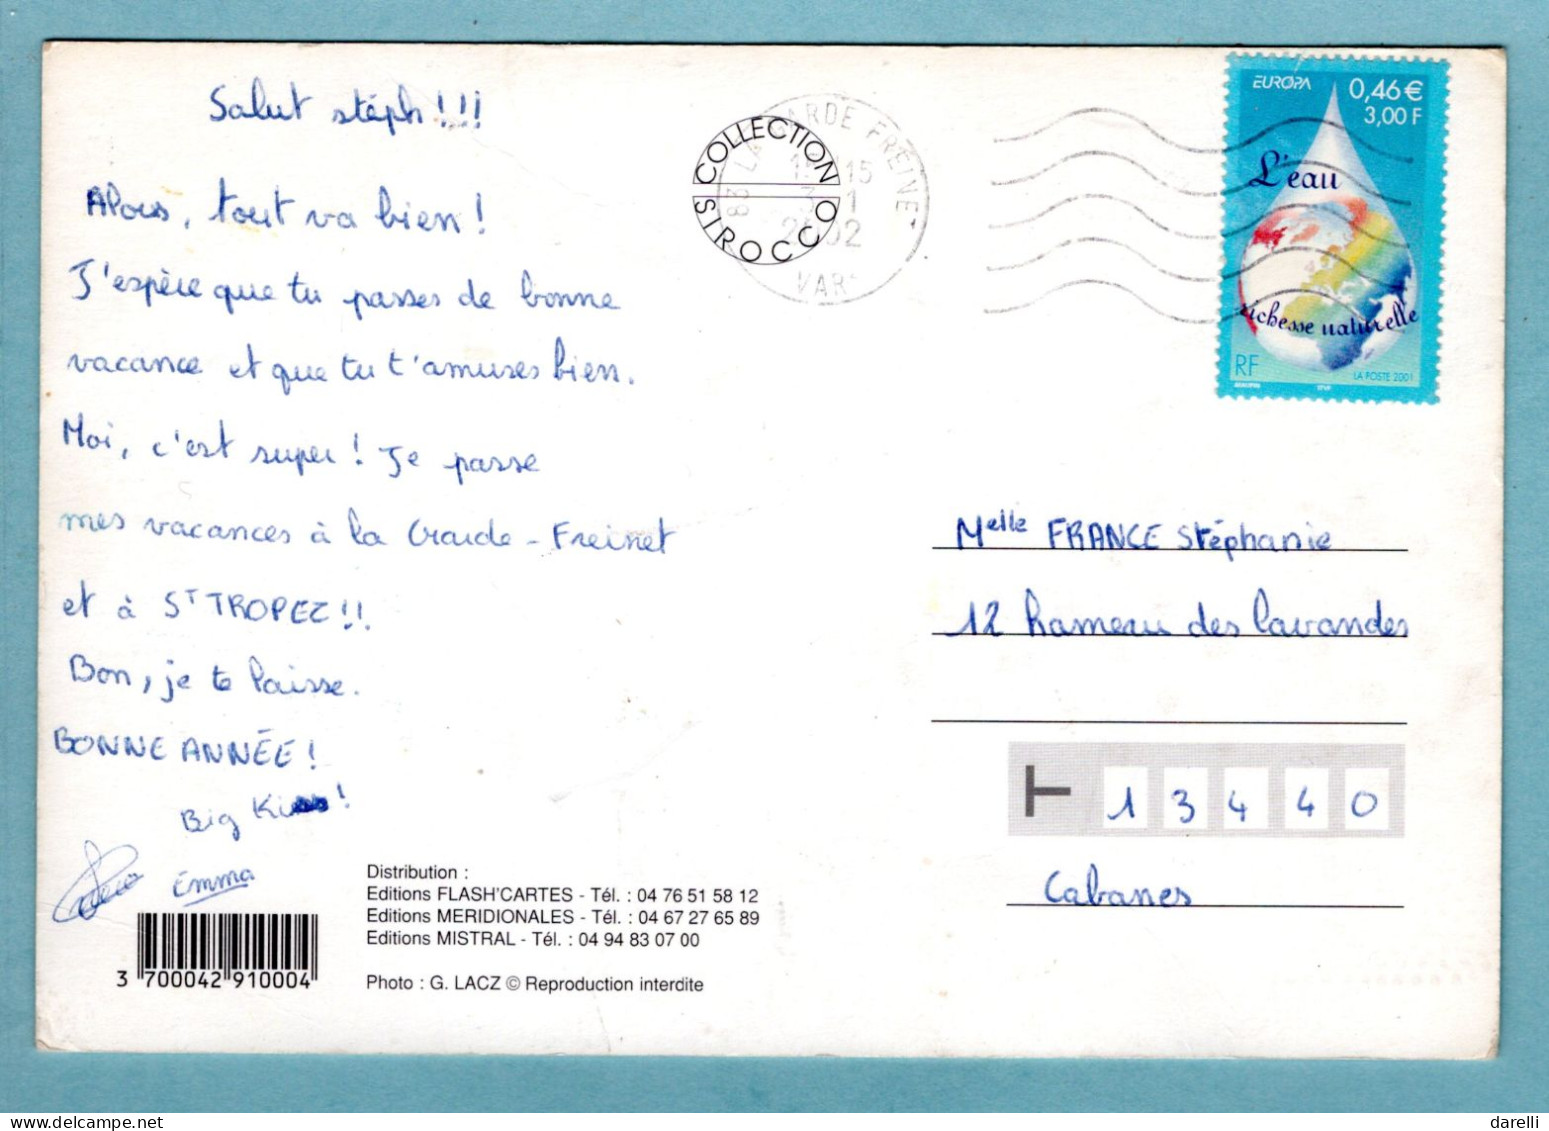 Salut stéph!!!
Alors, tout va bien!
J'espère que tu passes de bonne
vacance et que tu t'amuses bien.
Moi, c'est super! Je passe
mes vacances à la Garde-Freinet
et à ST TROPEZ!!
Bon, je te laisse.
BONNE ANNÉE!
Big Kiss!
Emma
3 700042 910004
Distribution :
Editions FLASH'CARTES - Tél. : 04 76 51 58 12
Editions MERIDIONALES - Tél. : 04 67 27 65 89
Editions MISTRAL - Tél. : 04 94 83 07 00
Photo : G. LACZ © Reproduction interdite
COLLECTION
SIROCCO
83 LA GARDE FREINET
15
3 1
2002
VAR
EUROPA
0,46 €
3,00 F
L'eau
richesse naturelle
RF
LA POSTE 2001
Melle FRANCE Stéphanie
12 hameau des lavandes
13440
Cabanes
darelli